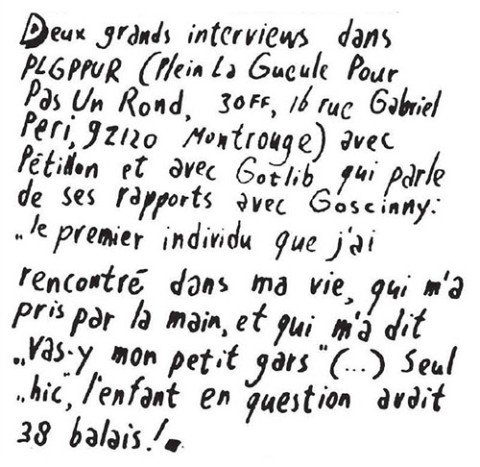 Deux grands interviews dans
PLGPPUR (Plein La Gueule Pour
Pas Un Rond, 30FF, 16 rue Gabriel
Peri, 92120 Montrouge) avec
Pétillon et avec Gotlib qui parle
de ses rapports avec Goscinny:
„le premier individu que j'ai
rencontré dans ma vie, qui m'a
pris par la main, et qui m'a dit
„Vas-y mon petit gars" (...) Seul
„hic", l'enfant en question avait
38 balais!